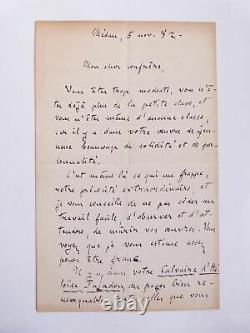 Médan, 5 nov. 82 -
Mon cher confrère,
Vous êtes trop modeste, vous n'ê-
tes déjà plus de la petite classe, et
vous n'êtes même d'aucune classe,
car il y a dans votre œuvre de jeu-
nesse beaucoup de solidité et de per-
sonnalité.
C'est même là ce qui me frappe,
votre précocité extraordinaire, et
je vous conseille de ne pas céder au
travail facile, d'observer et d'at-
tendre, de mûrir vos œuvres. Vous
voyez que je vous estime assez
pour être franc.
Il y a, dans votre Calvaire d'Hé-
loïde Pajadou, des pages bien re-
marquables, celles que vous